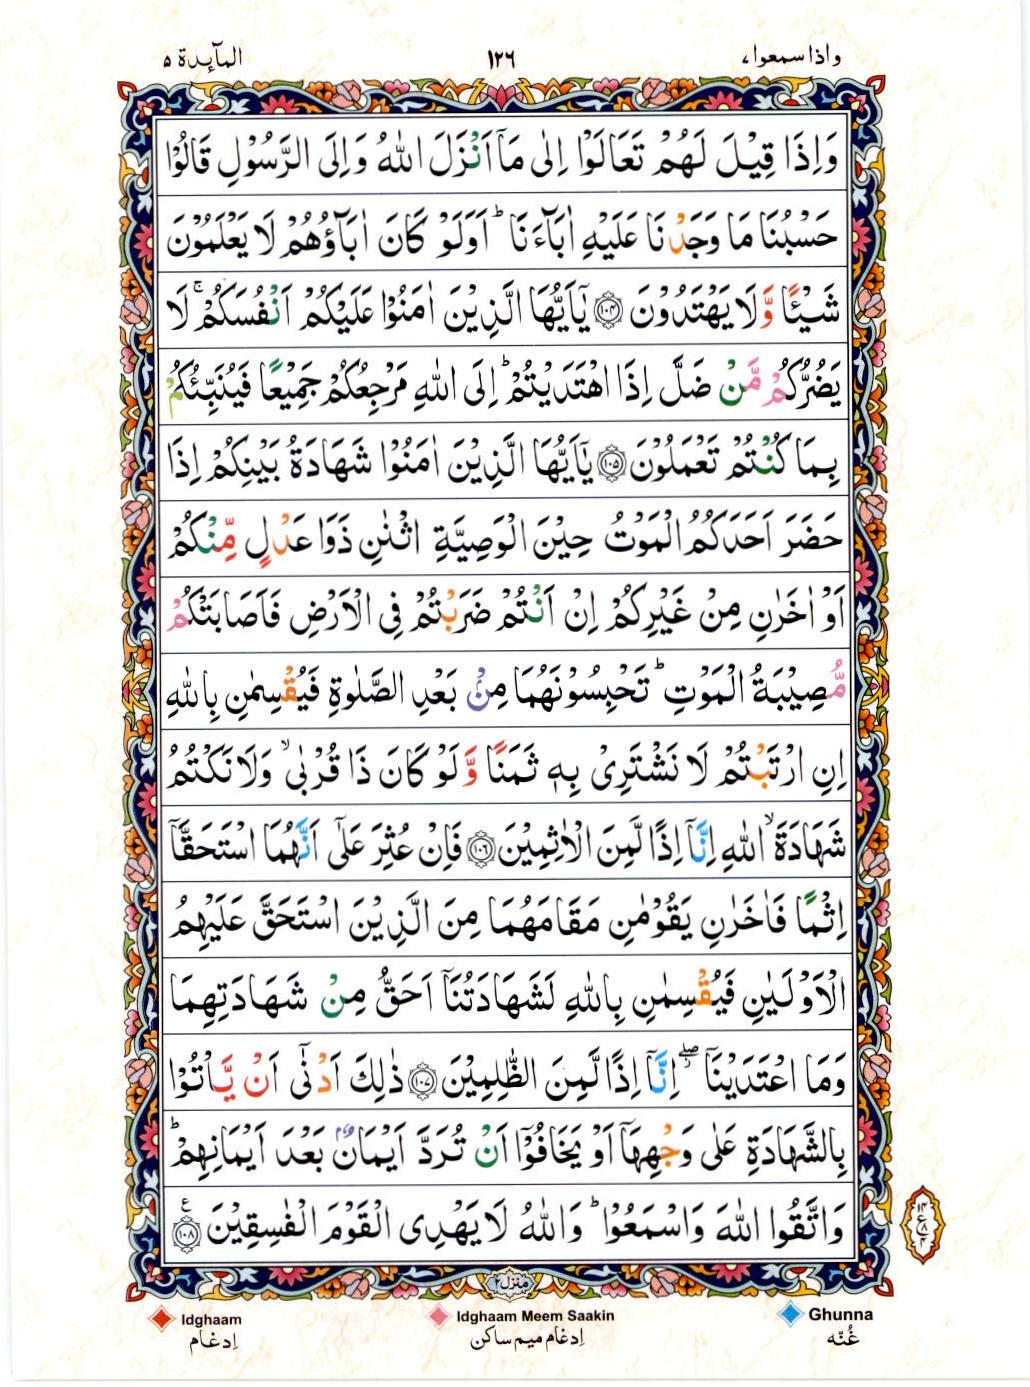 واذا سمعوا ٧
١٢٦
المآئدة ٥
وَاِذَا قِيْلَ لَهُمْ تَعَالَوْا اِلٰى مَاۤ اَنْزَلَ اللّٰهُ وَاِلَى الرَّسُوْلِ قَالُوْا
حَسْبُنَا مَا وَجَدْنَا عَلَيْهِ اٰبَآءَنَا ؕ اَوَلَوْ كَانَ اٰبَآؤُهُمْ لَا يَعْلَمُوْنَ
شَيْـًٔا وَّلَا يَهْتَدُوْنَ ۝١٠٤ يٰۤاَيُّهَا الَّذِيْنَ اٰمَنُوْا عَلَيْكُمْ اَنْفُسَكُمْ ۚ لَا
يَضُرُّكُمْ مَّنْ ضَلَّ اِذَا اهْتَدَيْتُمْ ؕ اِلَى اللّٰهِ مَرْجِعُكُمْ جَمِيْعًا فَيُنَبِّئُكُمْ
بِمَا كُنْتُمْ تَعْمَلُوْنَ ۝١٠٥ يٰۤاَيُّهَا الَّذِيْنَ اٰمَنُوْا شَهَادَةُ بَيْنِكُمْ اِذَا
حَضَرَ اَحَدَكُمُ الْمَوْتُ حِيْنَ الْوَصِيَّةِ اثْنٰنِ ذَوَا عَدْلٍ مِّنْكُمْ
اَوْ اٰخَرٰنِ مِنْ غَيْرِكُمْ اِنْ اَنْتُمْ ضَرَبْتُمْ فِى الْاَرْضِ فَاَصَابَتْكُمْ
مُّصِيْبَةُ الْمَوْتِ ؕ تَحْبِسُوْنَهُمَا مِنْۢ بَعْدِ الصَّلٰوةِ فَيُقْسِمٰنِ بِاللّٰهِ
اِنِ ارْتَبْتُمْ لَا نَشْتَرِىْ بِهٖ ثَمَنًا وَّلَوْ كَانَ ذَا قُرْبٰى ۙ وَلَا نَكْتُمُ
شَهَادَةَ ۙ اللّٰهِ اِنَّاۤ اِذًا لَّمِنَ الْاٰثِمِيْنَ ۝١٠٦ فَاِنْ عُثِرَ عَلٰۤى اَنَّهُمَا اسْتَحَقَّاۤ
اِثْمًا فَاٰخَرٰنِ يَقُوْمٰنِ مَقَامَهُمَا مِنَ الَّذِيْنَ اسْتَحَقَّ عَلَيْهِمُ
الْاَوْلَيٰنِ فَيُقْسِمٰنِ بِاللّٰهِ لَشَهَادَتُنَاۤ اَحَقُّ مِنْ شَهَادَتِهِمَا
وَمَا اعْتَدَيْنَاۤ ۖ اِنَّاۤ اِذًا لَّمِنَ الظّٰلِمِيْنَ ۝١٠٧ ذٰلِكَ اَدْنٰۤى اَنْ يَّاْتُوْا
بِالشَّهَادَةِ عَلٰى وَجْهِهَاۤ اَوْ يَخَافُوْۤا اَنْ تُرَدَّ اَيْمَانٌۢ بَعْدَ اَيْمَانِهِمْ ؕ
وَاتَّقُوا اللّٰهَ وَاسْمَعُوْا ؕ وَاللّٰهُ لَا يَهْدِى الْقَوْمَ الْفٰسِقِيْنَ ۝١٠٨ ع
منزل ٢
Idghaam
Idghaam Meem Saakin
Ghunna
اِدغام
اِدغام میم ساکن
غُنّه